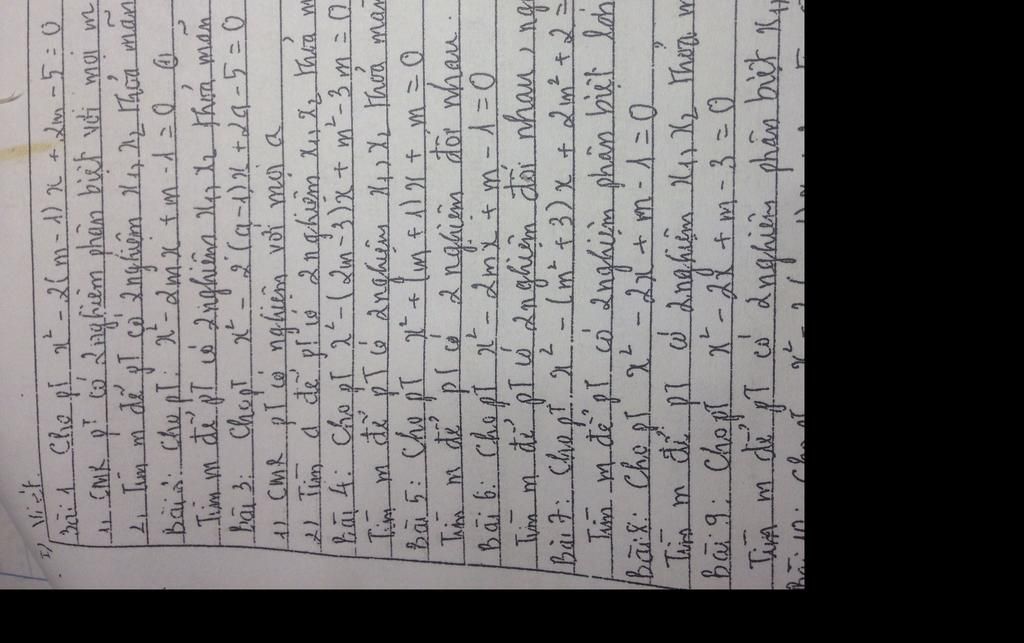 I, Vi-ét
Bài 1 Cho pT x² - 2(m - 1)x + 2m - 5 = 0
1, CMR pT có 2 nghiệm phân biệt với mọi m
2, Tìm m để pT có 2 nghiệm x₁, x₂ thoả mãn
Bài 2: Cho pT: x² - 2mx + m - 1 = 0 (1)
Tìm m để pT có 2 nghiệm x₁, x₂ thoả mãn
Bài 3: Cho pT x² - 2(a - 1)x + 2a - 5 = 0
1) CMR pT có nghiệm với mọi a
2) Tìm a để pT có 2 nghiệm x₁, x₂ thoả m
Bài 4: Cho pT x² - (2m - 3)x + m² - 3m = 0
Tìm m để pT có 2 nghiệm x₁, x₂ thoả mãn
Bài 5: Cho pT x² + (m + 1)x + m = 0
Tìm m để pT có 2 nghiệm đối nhau.
Bài 6: Cho pT x² - 2mx + m - 1 = 0
Tìm m để pT có 2 nghiệm đối nhau, ng
Bài 7: Cho pT x² - (m² + 3)x + 2m² + 2 =
Tìm m để pT có 2 nghiệm phân biệt lớn
Bài 8: Cho pT x² - 2x + m - 1 = 0
Tìm m để pT có 2 nghiệm x₁, x₂ thoả m
Bài 9: Cho pT x² - 2x + m - 3 = 0
Tìm m để pT có 2 nghiệm phân biệt x₁,
Bài 10: Cho pT